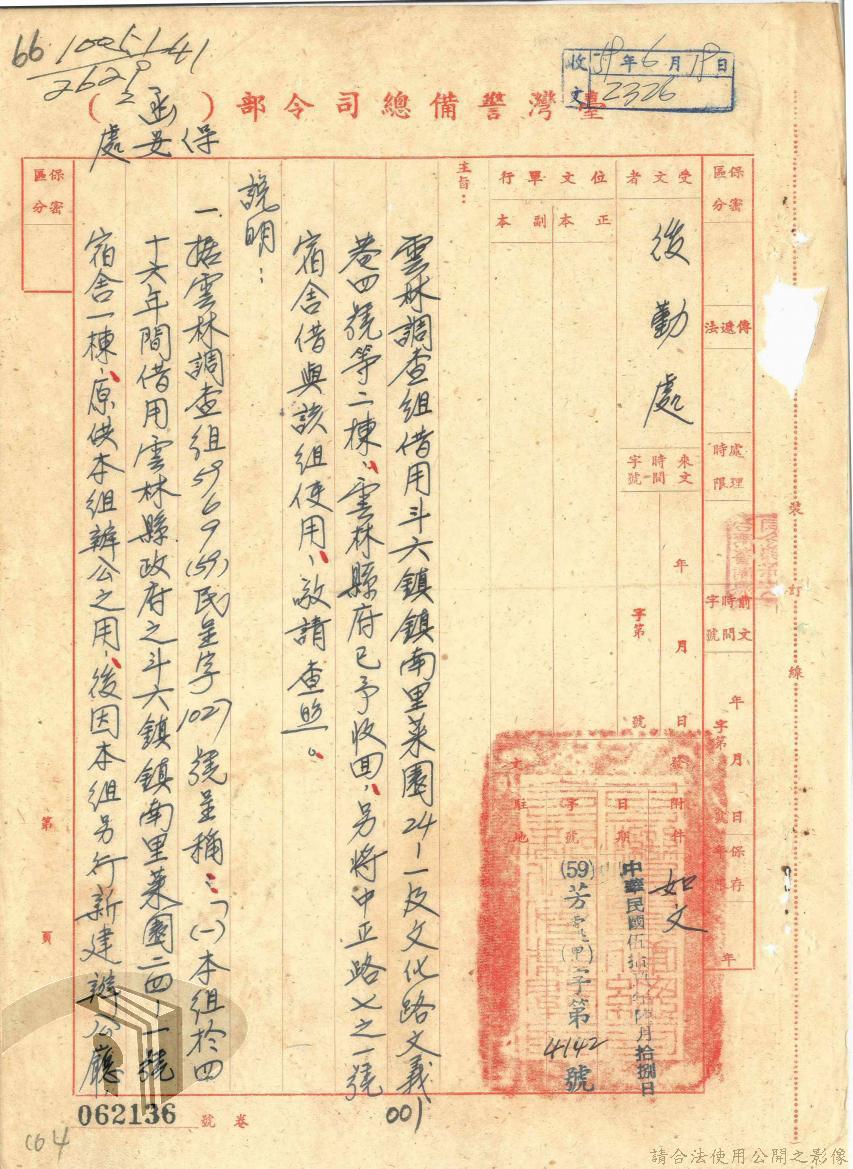 66 1005141
2629
2
收文
59年6月19日
2326
臺灣警備總司令部（ ）函
保安處
保密區分
傳遞法
處理時限
前文時間字號
年 月 日
字第 號
保存年限
年
受文者
後勤處
來文時間字號
年 月 日
字第 號
行文單位
正本
副本
發文
附件
如文
日期
中華民國伍拾玖年陸月拾捌日
字號
(59)芳
(甲)字第4142號
駐地
主旨：
雲林調查組借用斗六鎮鎮南里菜園24-1及文化路文義
巷四號等二棟、雲林縣府已予收回、另將中正路七之一號
宿舍借與該組使用、敬請查照。
說明：
一、據雲林調查組59 6 9(59)民呈字1027號呈稱：「(一)本組於四
十六年間借用雲林縣政府之斗六鎮鎮南里菜園二四-一號
宿舍一棟、原供本組辦公之用、後因本組另行新建辦公廳、
保密區分
第 頁
裝訂線
001
062136
卷號
004
請合法使用公開之影像